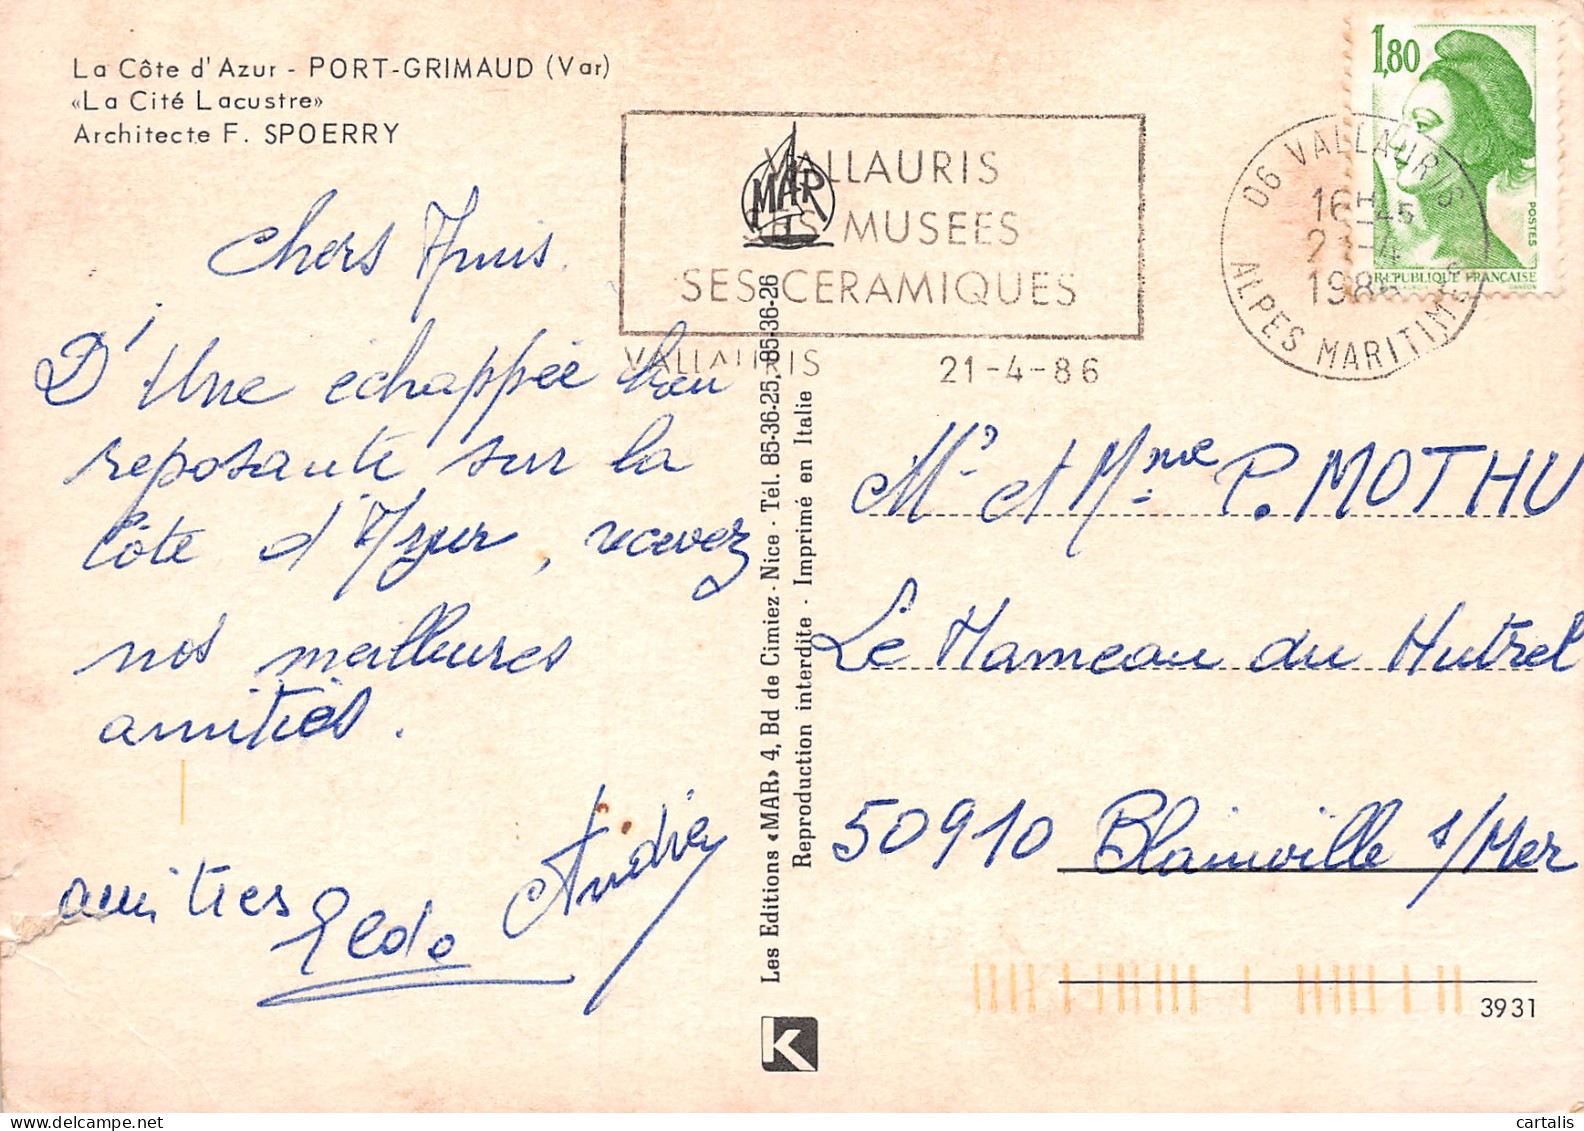 La Côte d'Azur - PORT-GRIMAUD (Var)
«La Cité Lacustre»
Architecte F. SPOERRY
1,80
POSTES
REPUBLIQUE FRANÇAISE
VALLAURIS
SES MUSEES
SES CERAMIQUES
VALLAURIS 21-4-86
MAR
06 VALLAURIS
16H45
21-4
1986
ALPES MARITIMES
Chers Amis.
D'Une échappée bien
reposante sur la
Côte d'Azur, recevez
nos meilleures
amitiés.
amitiés Aldo Andrée
Les Editions «MAR» 4, Bd de Cimiez - Nice - Tél. 85-36-25, 85-36-26
Reproduction interdite - Imprimé en Italie
Mr et Mme P. MOTHU
Le Hameau du Hutrel
50910 Blainville s/Mer
3931
K
cartalis